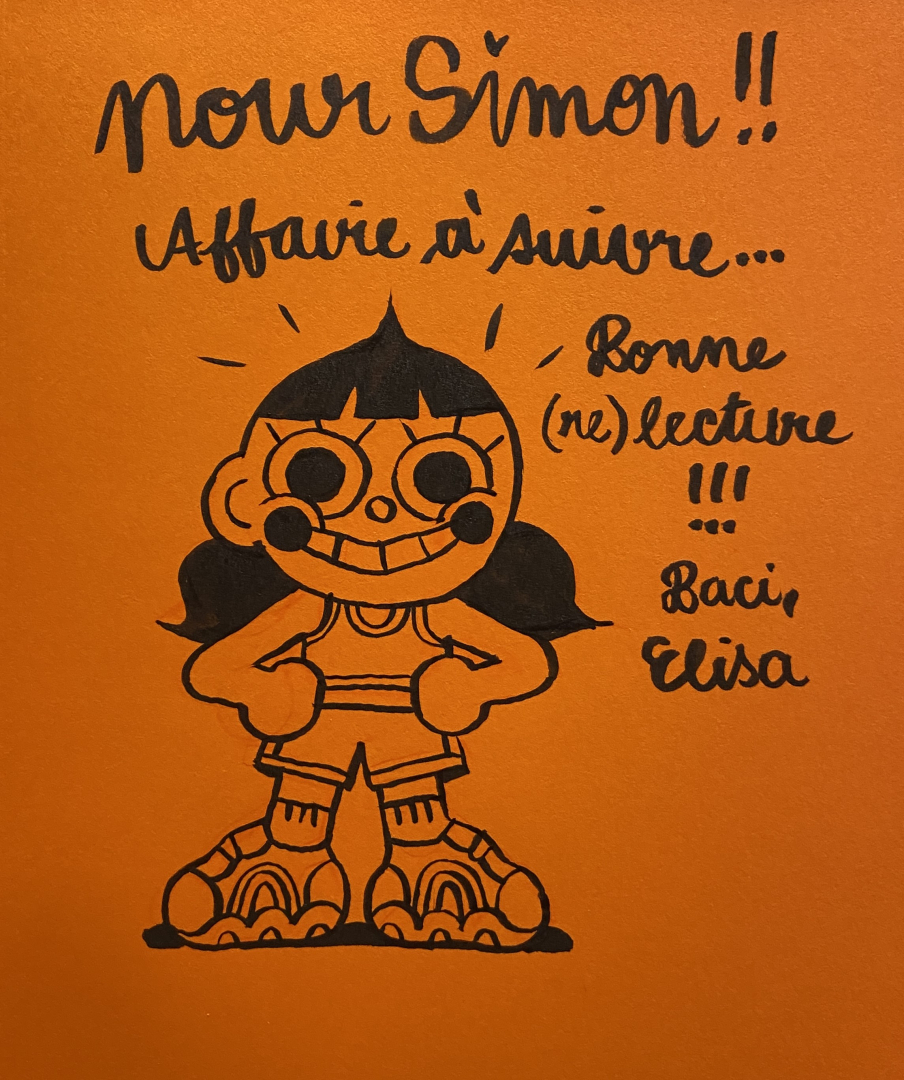 Nour Simon !!
Affaire à suivre...
Bonne
(re) lecture
!!!
Baci,
Elisa